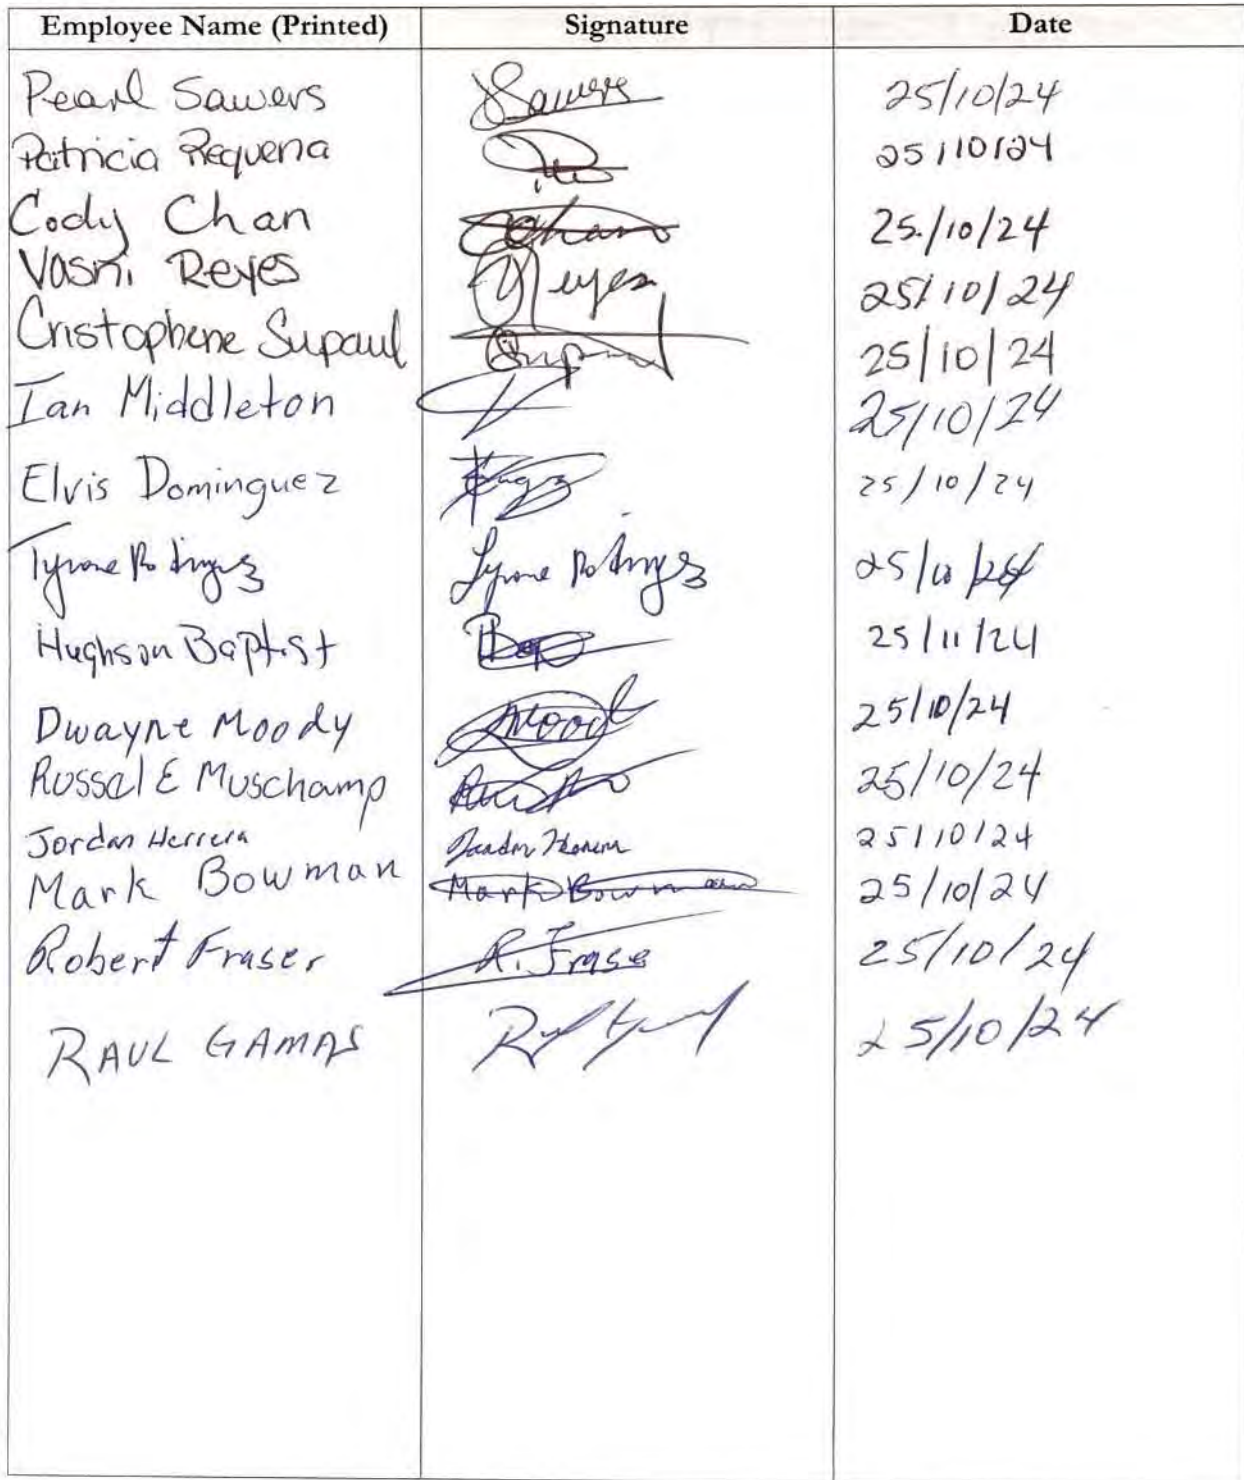 Employee Name (Printed) Signature Date
Pearl Sawers Sawers 25/10/24
Patricia Requena 25/10/24
Cody Chan Chan 25/10/24
Vasni Reyes Reyes 25/10/24
Cristophene Supaul Supaul 25/10/24
Ian Middleton 25/10/24
Elvis Dominguez 25/10/24
Tyrone Tyrone 25/10/24
Hughson Baptist Bap 25/11/24
Dwayne Moody Mood 25/10/24
Russel E Muschamp 25/10/24
Jordan Herrera 25/10/24
Mark Bowman Mark Bowman 25/10/24
Robert Fraser R. Frase 25/10/24
RAUL GAMAS 25/10/24